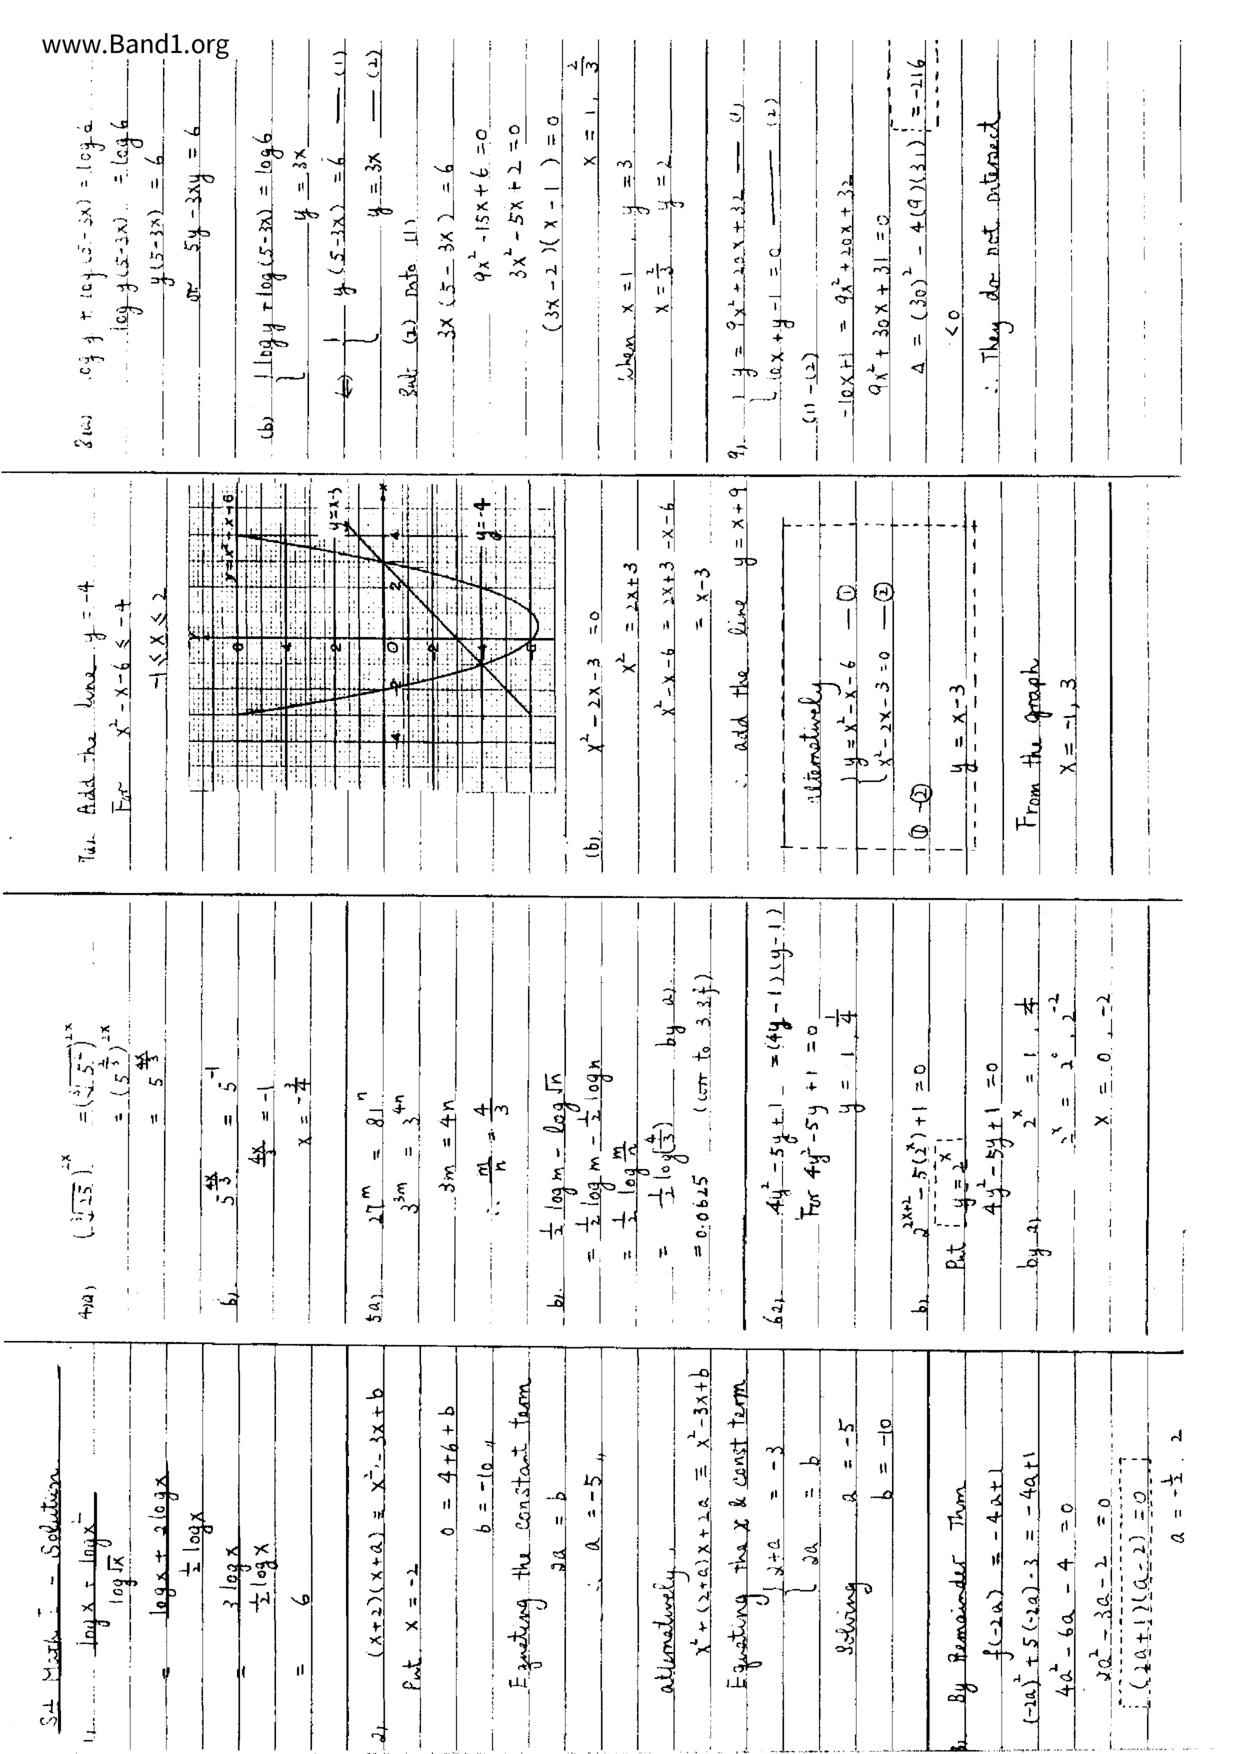 www.Band1.org
S.4 Math I - Solution
1. log x + log x²
log √x
= log x + 2 log x
½ log x
= 3 log x
½ log x
= 6
2. (x+2)(x+a) ≡ x² - 3x + b
Put x = -2
0 = 4+6+b
b = -10 〃
Equating the constant term
2a = b
∴ a = -5 〃
alternatively,
x² + (2+a)x + 2a ≡ x² - 3x + b
Equating the x & const term
{ 2+a = -3
{ 2a = b
Solving a = -5
b = -10
3. By Remainder Thm
f(-2a) = -4a+1
(-2a)² + 5(-2a) - 3 = -4a+1
4a² - 6a - 4 = 0
2a² - 3a - 2 = 0
(2a+1)(a-2) = 0
a = -½, 2
4(a) (³√25)^2x = (³√5²)^2x
= (5^⅔)^2x
= 5^(4x/3)
b) 5^(4x/3) = 5^-1
4x/3 = -1
x = -¾
5a) 27^m = 81^n
3^3m = 3^4n
3m = 4n
∴ m/n = 4/3
b) ½ log m - log √n
= ½ log m - ½ log n
= ½ log m/n
= ½ log(4/3) by a)
= 0.0625 (corr to 3 s.f.)
6a) 4y² - 5y + 1 = (4y-1)(y-1)
For 4y² - 5y + 1 = 0
y = 1, ¼
b) 2^(2x+2) - 5(2^x) + 1 = 0
Put y = 2^x
4y² - 5y + 1 = 0
by a) 2^x = 1, ¼
2^x = 2^0, 2^-2
x = 0, -2
7(a) Add the line y = -4
For x² - x - 6 ≤ -4
-1 ≤ x ≤ 2
y = x² - x - 6
y = x-3
y = -4
(b) x² - 2x - 3 = 0
x² = 2x+3
x² - x - 6 = 2x+3 -x-6
= x-3
∴ add the line y = x+9
alternatively
{ y = x² - x - 6 — ①
{ x² - 2x - 3 = 0 — ②
① - ②
y = x-3
From the graph
x = -1, 3
8(a) log y + log(5-3x) = log 6
log y(5-3x) = log 6
y(5-3x) = 6
or 5y - 3xy = 6
(b) { log y + log(5-3x) = log 6
y = 3x
⇔ { y(5-3x) = 6 — (1)
{ y = 3x — (2)
Sub (2) into (1)
3x(5-3x) = 6
9x² - 15x + 6 = 0
3x² - 5x + 2 = 0
(3x-2)(x-1) = 0
x = 1, ⅔
When x = 1, y = 3
x = ⅔ y = 2
9. { y = 9x² + 20x + 32 — (1)
{ 10x + y - 1 = 0 — (2)
(1) - (2)
-10x+1 = 9x² + 20x + 32
9x² + 30x + 31 = 0
Δ = (30)² - 4(9)(31) = -216
< 0
∴ They do not intersect